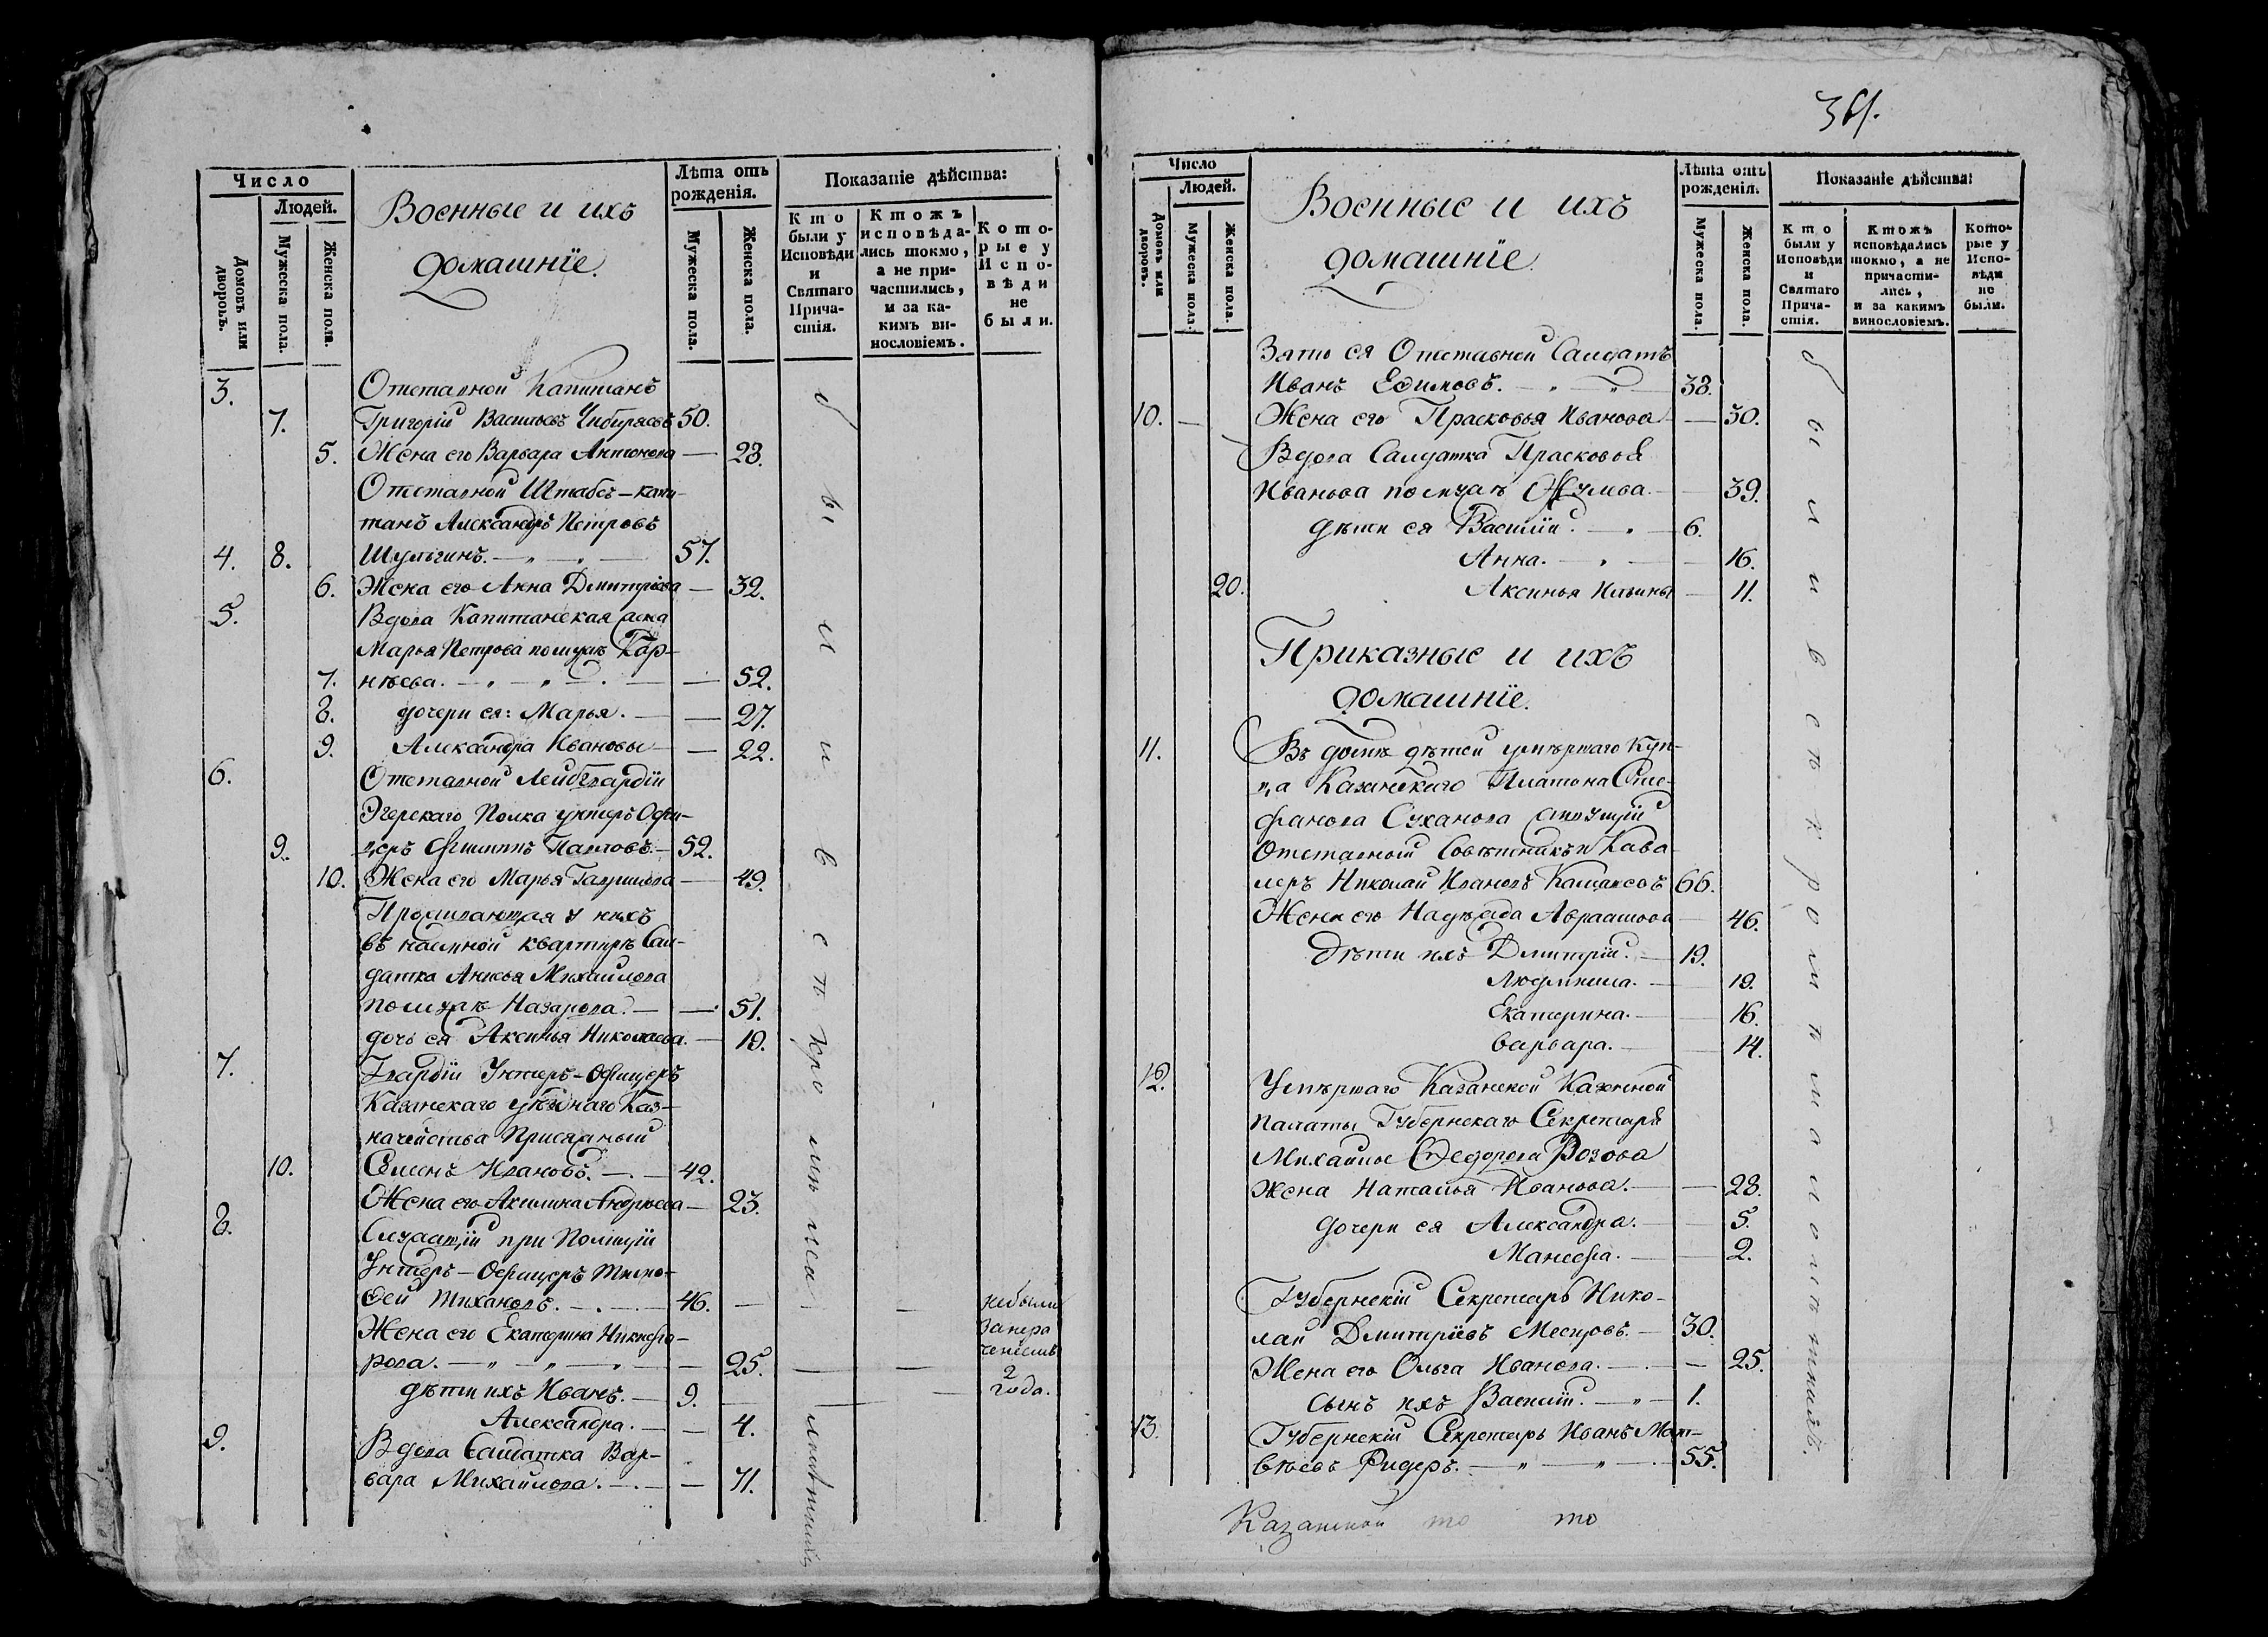 Число
Людей.
Домовъ или дворовъ.
Мужска пола.
Женска пола.
Военные и ихъ
домашнїе.
Лѣта отъ рожденія.
Мужеска пола.
Женска пола.
Показаніе дѣйства:
Кто были у Исповѣди и Святаго Прича-стія.
Ктожъ исповѣда-лись токмо, а не при-частились, и за ка-кимъ ви-нословіемъ.
Кото-рые у Испо-вѣди не были.
3. Отставной Капитанъ
7. Григорій Васильевъ 50.
5. Жена его Варвара Антонова — 28.
Отставной Штабсъ-капи-
танъ Александръ Петровъ
4. 8. Шульгинъ. — 57.
6. Жена его Анна Дмитріева — 32.
5. Вдова Капитанская жена
Марья Петрова по мужѣ Кор-
7. нѣева. — 52.
8. дочери ея: Марья. — 27.
9. Александра Ивановы — 22.
6. Отставной Лейбгвардіи
Эгерскаго Полка унтеръ Офи-
9. церъ Филиппъ Павловъ. — 52.
10. Жена его Марья Гаврилова — 49.
Проживающая у нихъ
въ наемной квартирѣ Сал-
датка Анисья Михайлова
по мужѣ Назарова. — 51.
дочь ея Аксинья Николаева. — 19.
7. Гвардіи Унтеръ-Офицеръ
Казанскаго уѣзнаго Каз-
начейства Присяжный
10. Семенъ Ивановъ. — 42.
Жена его Акилина Андреева — 23.
8. Служащій при Полиціи
Унтеръ-Офицеръ Тимо-
фей Тихановъ. — 46. — — небыли
Жена его Екатерина Никифо-
рова. — 25. — —
2 года.
дѣти ихъ Иванъ. — 9. —
Александра. — 4.
9. Вдова Салдатка Вар-
вара Михайлова. — 71.
были и въ
Число
Людей.
Домовъ или дворовъ.
Мужеска пола.
Женска пола.
Военные и ихъ
домашнїе.
Лѣта отъ рожденія.
Мужеска пола.
Женска пола.
Показаніе дѣйства:
Кто были у Исповѣди и Святаго Прича-стія.
Ктожъ исповѣдались токмо, а не причасти-лись, и за какимъ винословіемъ.
Кото-рые у Испо-вѣди не были.
Зять ея Отставной Салдатъ
Иванъ Ефимовъ. — 38.
10. — Жена его Прасковья Иванова — 30.
Вдова Салдатка Прасковья
Иванова по мужѣ — 39.
дѣти ея Василій. — 6.
Анна. — 16.
20. Аксинья Ильины — 11.
Приказные и ихъ
домашнїе.
11. Въ домѣ дѣтей умѣршаго Куп-
ца Казанскаго Платона Сте-
фанова Суханова
Отставной Совѣтникъ и Кава-
леръ Николай Ивановъ 66.
Жена его Надежда Авраамова — 46.
Дѣти ихъ Дмитрій. — 19.
Людмила. — 19.
Екатерина. — 16.
Варвара. — 14.
12. Умѣршаго Казанской Казенной
Палаты Губернскаго Секретаря
Михаила Федорова Розова
жена Наталья Иванова. — 28.
дочери ея Александра. — 5.
Манефа. — 2.
Губернскій Секретарь Нико-
лай Дмитріевъ — 30.
Жена его Ольга Иванова. — 25.
сынъ ихъ Василій. — 1.
13. Губернскій Секретарь Иванъ Мат-
вѣевъ Ридеръ. — 55.
были и въ
Казанской то то